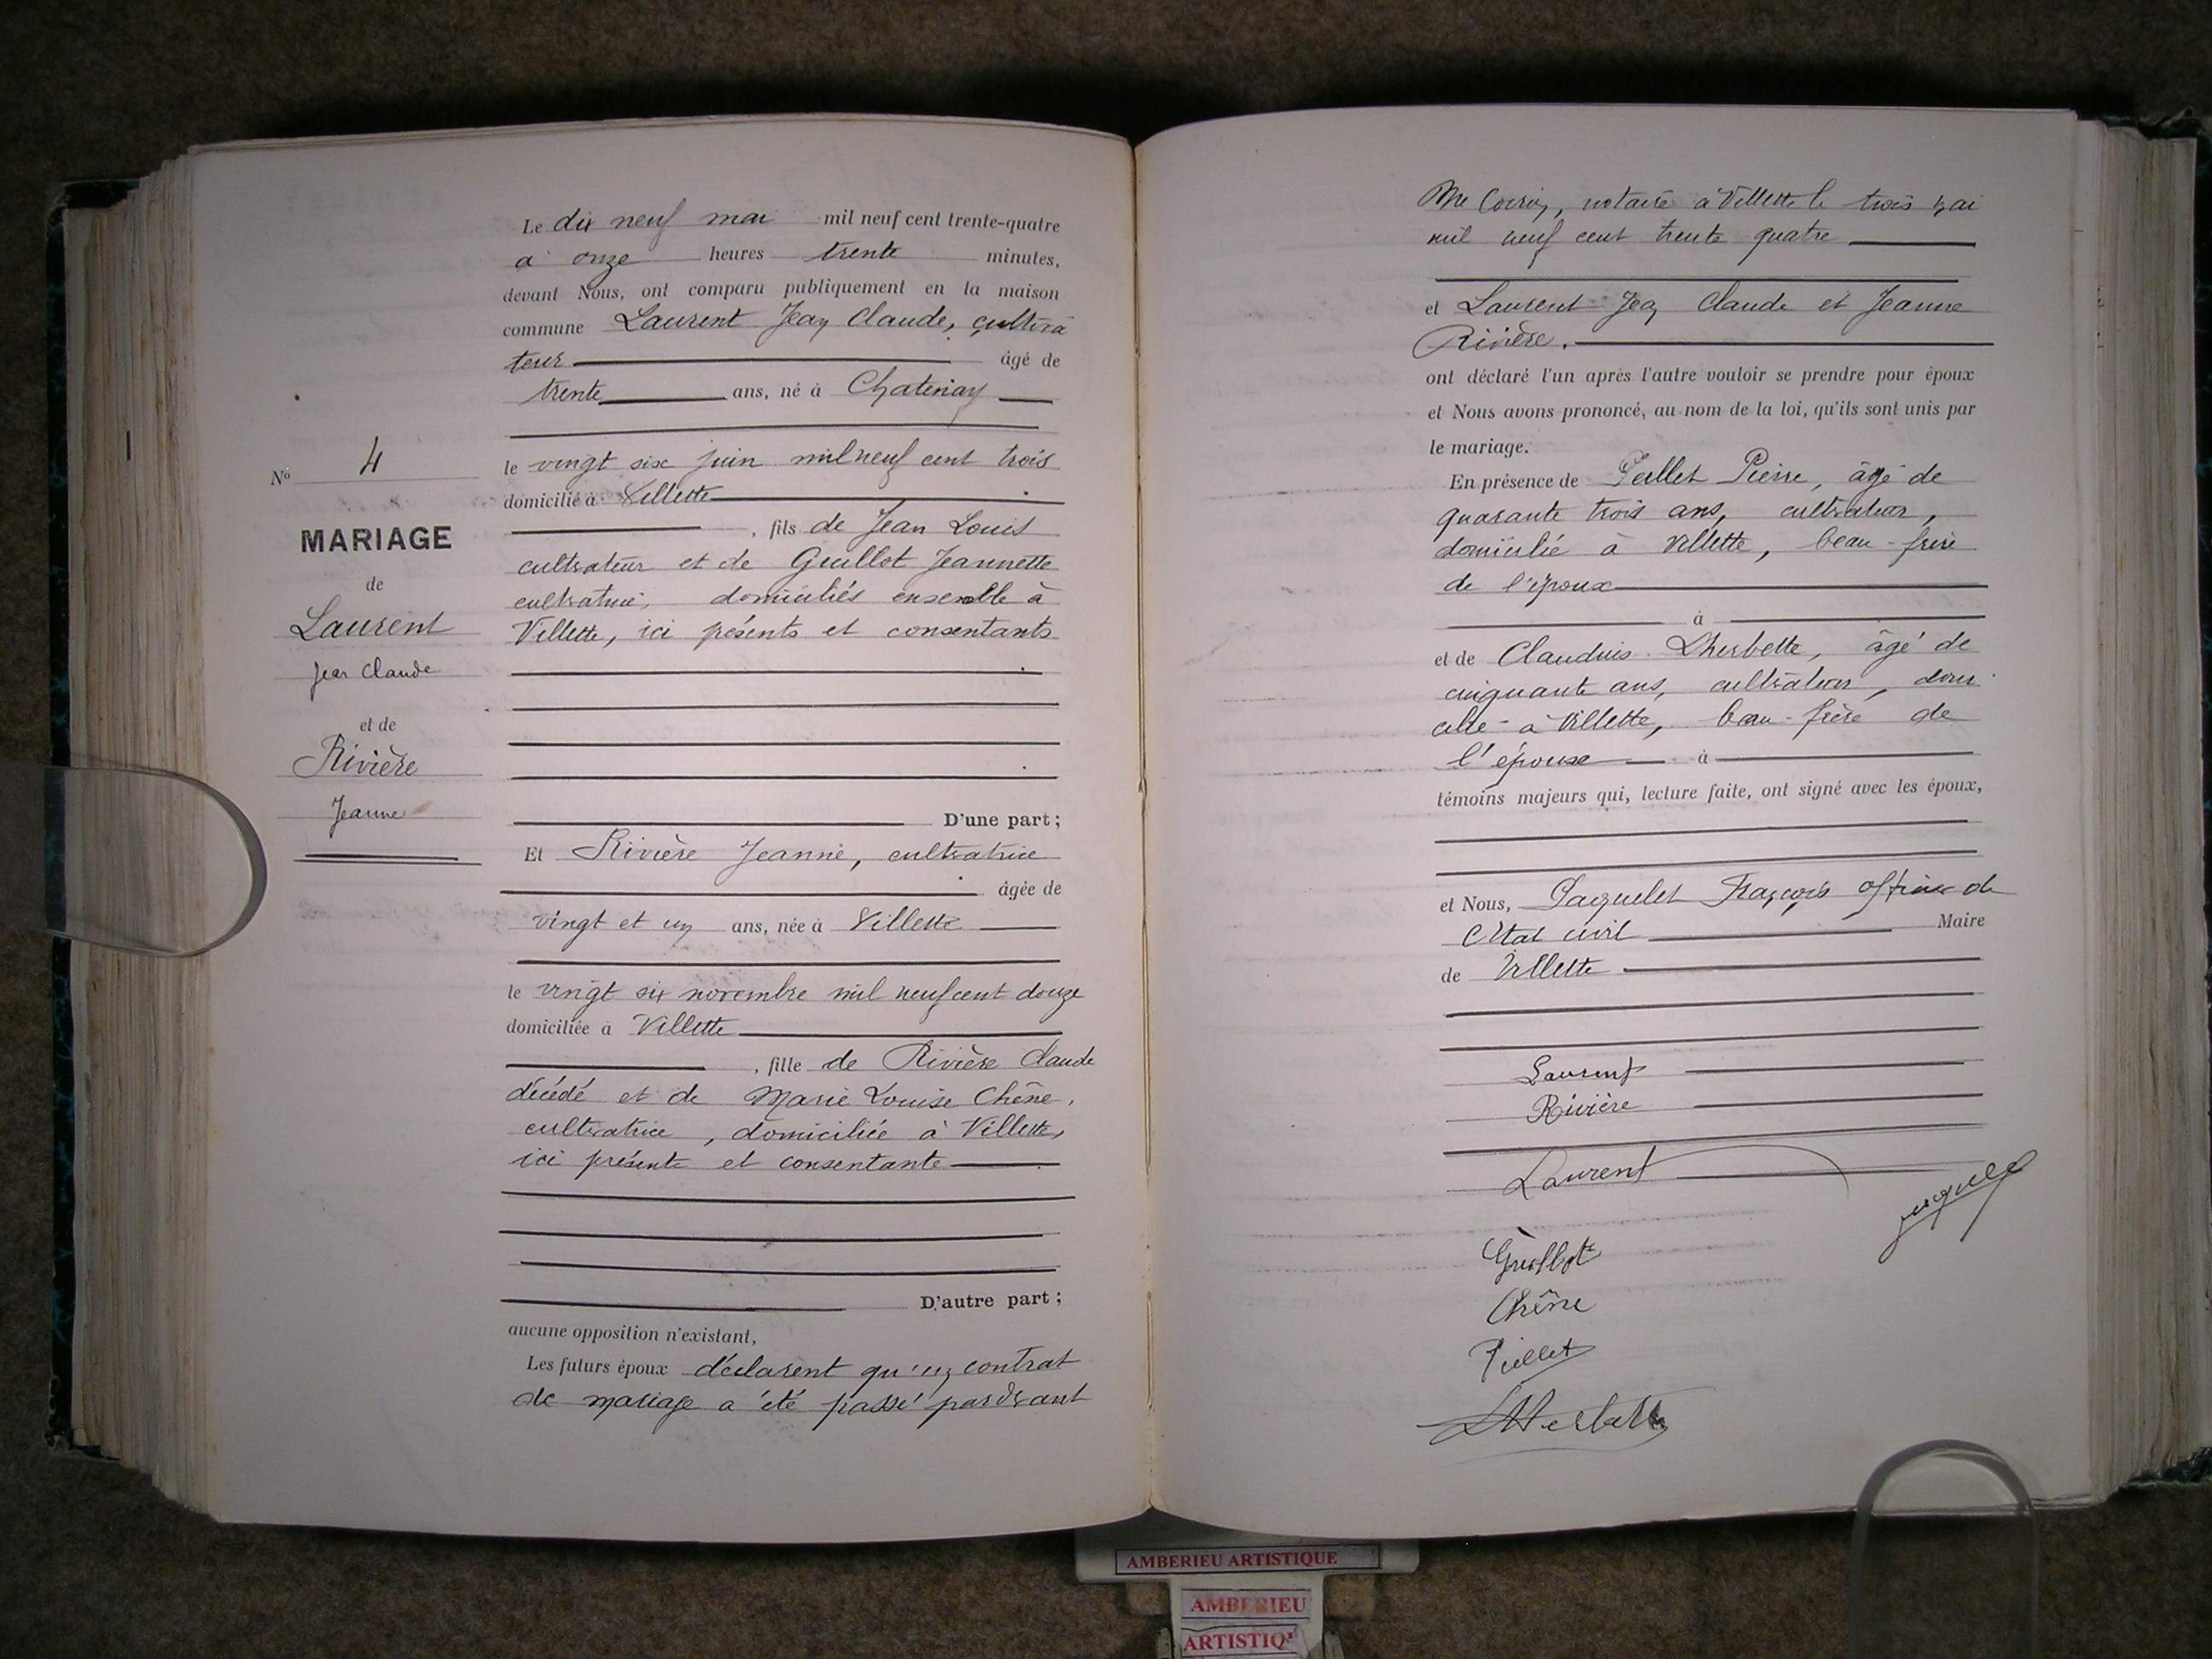 Nº 4
MARIAGE
de
Laurent
Jean Claude
et de
Rivière
Jeanne
Le dix neuf mai mil neuf cent trente-quatre
à onze heures trente minutes,
devant Nous, ont comparu publiquement en la maison
commune Laurent Jean Claude, cultiva
teur âgé de
trente ans, né à Chatenay
le vingt six juin mil neuf cent trois
domicilié à Villette
, fils de Jean Louis
cultivateur et de Guillot Jeannette
cultivatrice, domiciliés ensemble à
Villette, ici présents et consentants
D'une part ;
Et Rivière Jeanne, cultivatrice
âgée de
vingt et un ans, née à Villette
le vingt six novembre mil neuf cent douze
domiciliée à Villette
, fille de Rivière Claude
décédé et de Marie Louise Chêne,
cultivatrice, domiciliée à Villette,
ici présente et consentante
D'autre part ;
aucune opposition n'existant,
Les futurs époux déclarent qu'un contrat
de mariage a été passé pardevant
Me notaire à Villette le trois mai
mil neuf cent trente quatre
et Laurent Jean Claude et Jeanne
Rivière.
ont déclaré l'un après l'autre vouloir se prendre pour époux
et Nous avons prononcé, au nom de la loi, qu'ils sont unis par
le mariage.
En présence de Pierre, âgé de
quarante trois ans, cultivateur,
domicilié à Villette, beau-frère
de l'époux
à
et de Claudius Lherbette, âgé de
cinquante ans, cultivateur, domi
cilié à Villette, beau-frère de
l'épouse à
témoins majeurs qui, lecture faite, ont signé avec les époux,
et Nous, Paquelet François officier de
l'Etat civil Maire
de Villette
Laurent
Rivière
Laurent
Guillot
Chêne
AMBERIEU ARTISTIQUE
AMBERIEU
ARTISTIQ